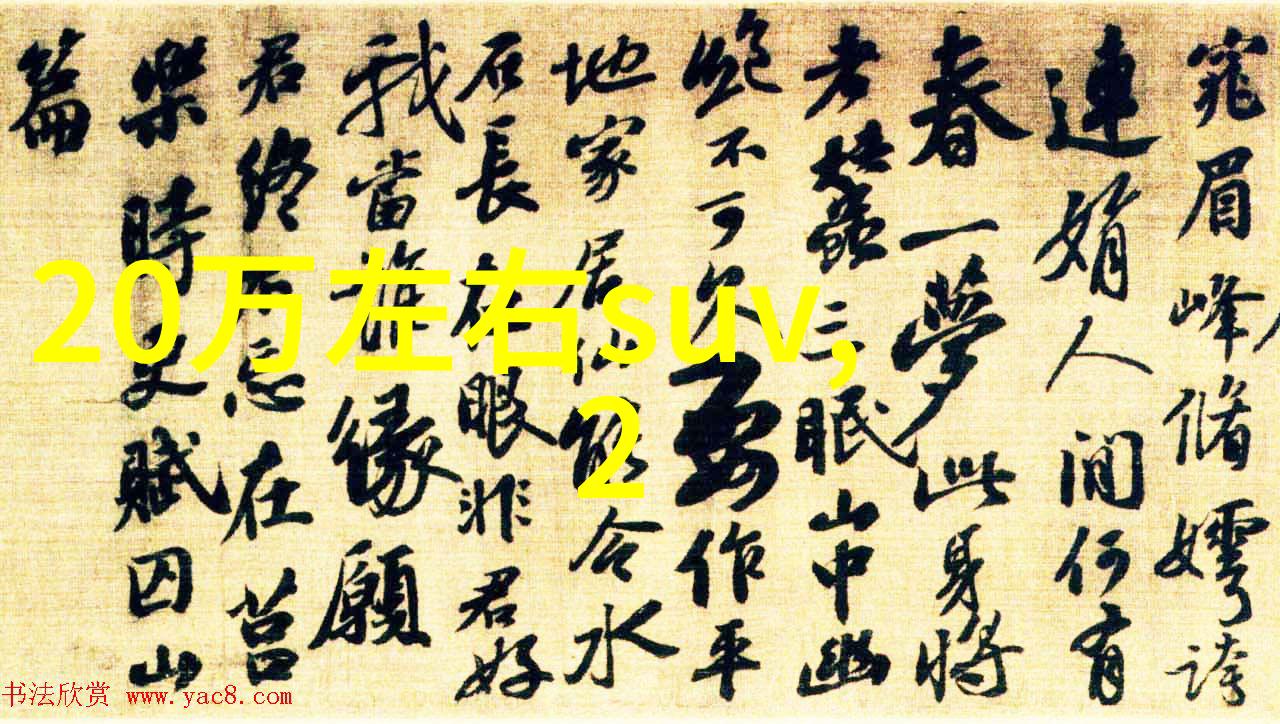 窕眉峰脩嫮誇
連娟人間何有
春一夢此身將
老蠶三眠山中幽
絕不可久要作平
地家居仙能令水
石長在眼非君好
我當誰緣願
君終不忘在莒
樂時文賦囚山
篇
20万左右suv,
2
书法欣赏 www.yac8.com